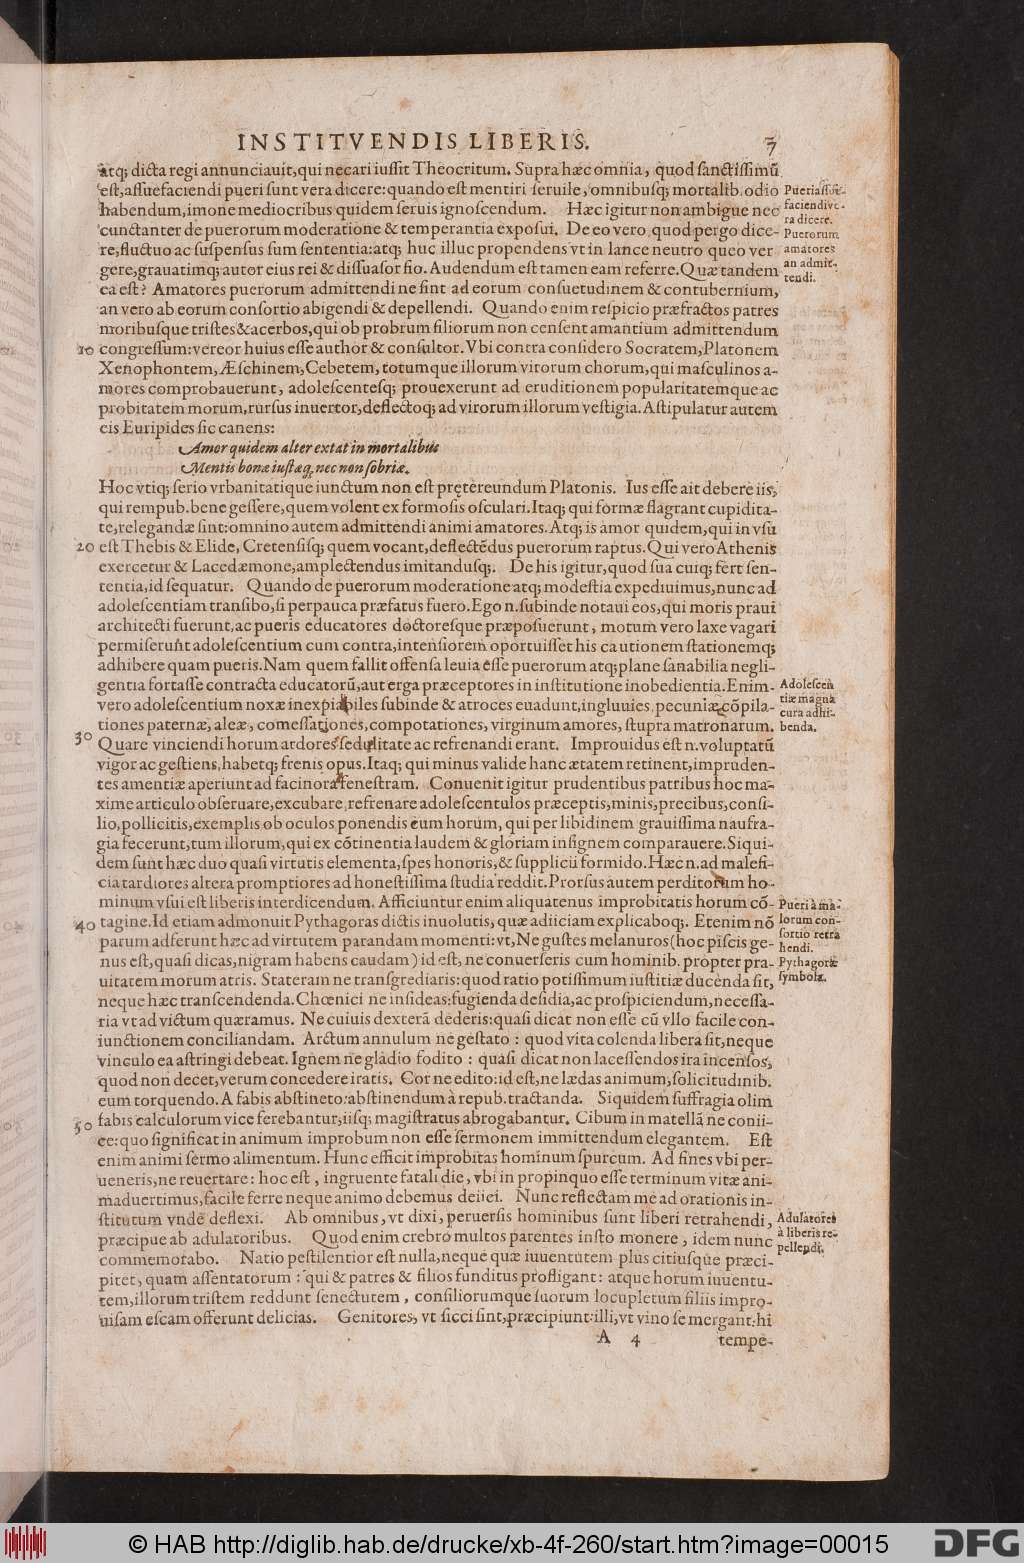 INSTITVENDIS LIBERIS. 7
atq; dicta regi annunciauit, qui necari iussit Theocritum. Supra hæc omnia, quod sanctissimū
est, assuefaciendi pueri sunt vera dicere: quando est mentiri seruile, omnibusq; mortalib. odio
habendum, imo ne mediocribus quidem seruis ignoscendum. Hæc igitur non ambigue nec
cunctanter de puerorum moderatione & temperantia exposui. De eo vero, quod pergo dice-
re, fluctuo ac suspensus sum sententia: atq; huc illuc propendens vt in lance neutro queo ver
gere, grauatimq; autor eius rei & dissuasor fio. Audendum est tamen eam referre. Quæ tandem
ea est? Amatores puerorum admittendi ne sint ad eorum consuetudinem & contubernium,
an vero ab eorum consortio abigendi & depellendi. Quando enim respicio præfractos patres
moribusque tristes & acerbos, qui ob probrum filiorum non censent amantium admittendum
10 congressum: vereor huius esse author & consultor. Vbi contra considero Socratem, Platonem
Xenophontem, Æschinem, Cebetem, totumque illorum virorum chorum, qui masculinos a-
mores comprobauerunt, adolescentesq; prouexerunt ad eruditionem popularitatemque ac
probitatem morum, rursus inuertor, deflectoq; ad virorum illorum vestigia. Astipulatur autem
eis Euripides sic canens:
Amor quidem alter extat in mortalibus
Mentis bonæ iustæq; nec non sobriæ.
Hoc vtiq; serio vrbanitatique iunctum non est prętereundum Platonis. Ius esse ait debere iis,
qui rempub. bene gessere, quem volent ex formosis osculari. Itaq; qui formæ flagrant cupidita-
te, relegandæ sint: omnino autem admittendi animi amatores. Atq; is amor quidem, qui in vsu
20 est Thebis & Elide, Cretensisq; quem vocant, deflectēdus puerorum raptus. Qui vero Athenis
exercetur & Lacedæmone, amplectendus imitandusq;. De his igitur, quod sua cuiq; fert sen-
tentia, id sequatur. Quando de puerorum moderatione atq; modestia expediuimus, nunc ad
adolescentiam transibo, si perpauca præfatus fuero. Ego n. subinde notaui eos, qui moris praui
architecti fuerunt, ac pueris educatores doctoresque præposuerunt, motum vero laxe vagari
permiserunt adolescentium cum contra, intensiorem oportuisset his cautionem stationemq;
adhibere quam pueris. Nam quem fallit offensa leuia esse puerorum atq; plane sanabilia negli-
gentia fortasse contracta educatorū, aut erga præceptores in institutione inobedientia. Enim-
vero adolescentium noxæ inexpiabiles subinde & atroces euadunt, ingluuies, pecuniæ cōpila-
tiones paternæ, aleæ, comessationes, compotationes, virginum amores, stupra matronarum.
30 Quare vinciendi horum ardores sedulitate ac refrenandi erant. Improuidus est n. voluptatū
vigor ac gestiens, habetq; frenis opus. Itaq; qui minus valide hanc ætatem retinent, impruden-
tes amentiæ aperiunt ad facinora fenestram. Conuenit igitur prudentibus patribus hoc ma-
xime articulo obseruare, excubare, refrenare adolescentulos præceptis, minis, precibus, consi-
lio, pollicitis, exemplis ob oculos ponendis eum horum, qui per libidinem grauissima naufra-
gia fecerunt, tum illorum, qui ex cōtinentia laudem & gloriam insignem comparauere. Siqui-
dem sunt hæc duo quasi virtutis elementa, spes honoris, & supplicii formido. Hæc n. ad malefi-
cia tardiores altera promptiores ad honestissima studia reddit. Prorsus autem perditorum ho-
minum vsui est liberis interdicendum. Afficiuntur enim aliquatenus improbitatis horum cō-
40 tagine. Id etiam admonuit Pythagoras dictis inuolutis, quæ adiiciam explicaboq;. Etenim nō
parum adferunt hæc ad virtutem parandam momenti: vt, Ne gustes melanuros (hoc piscis ge-
nus est, quasi dicas, nigram habens caudam) id est, ne conuerseris cum hominib. propter pra-
uitatem morum atris. Stateram ne transgrediaris: quod ratio potissimum iustitiæ ducenda sit,
neque hæc transcendenda. Chœnici ne insideas: fugienda desidia, ac prospiciendum, necessa-
ria vt ad victum quæramus. Ne cuiuis dexterā dederis: quasi dicat non esse cū vllo facile con-
iunctionem conciliandam. Arctum annulum ne gestato: quod vita colenda libera sit, neque
vinculo ea astringi debeat. Ignem ne gladio fodito: quasi dicat non lacessendos ira incensos,
quod non decet, verum concedere iratis. Cor ne edito: id est, ne lædas animum, solicitudinib.
eum torquendo. A fabis abstineto: abstinendum à repub. tractanda. Siquidem suffragia olim
50 fabis calculorum vice ferebantur, iisq; magistratus abrogabantur. Cibum in matellā ne conii-
ce: quo significat in animum improbum non esse sermonem immittendum elegantem. Est
enim animi sermo alimentum. Hunc efficit improbitas hominum spurcum. Ad fines vbi per-
ueneris, ne reuertare: hoc est, ingruente fatali die, vbi in propinquo esse terminum vitæ ani-
maduertimus, facile ferre neque animo debemus deiici. Nunc reflectam me ad orationis in-
stitutum vnde deflexi. Ab omnibus, vt dixi, peruersis hominibus sunt liberi retrahendi,
præcipue ab adulatoribus. Quod enim crebro multos parentes insto monere, idem nunc
commemorabo. Natio pestilentior est nulla, neque quæ iuuentutem plus citiusque præci-
pitet, quam assentatorum: qui & patres & filios funditus profligant: atque horum iuuentu-
tem, illorum tristem reddunt senectutem, consiliorumque suorum locupletum filiis impro-
uisam escam offerunt delicias. Genitores, vt sicci sint, præcipiunt: illi, vt vino se mergant: hi
A 4 tempe-
Pueri assue-
faciendi ve-
ra dicere.
Puerorum
amatores
an admit-
tendi.
Adolescen
tiæ magna
cura adhi-
benda.
Pueri à ma-
lorum con-
sortio retra
hendi.
Pythagoræ
symbola.
Adulatores
à liberis re-
pellendi.
© HAB http://diglib.hab.de/drucke/xb-4f-260/start.htm?image=00015
DFG